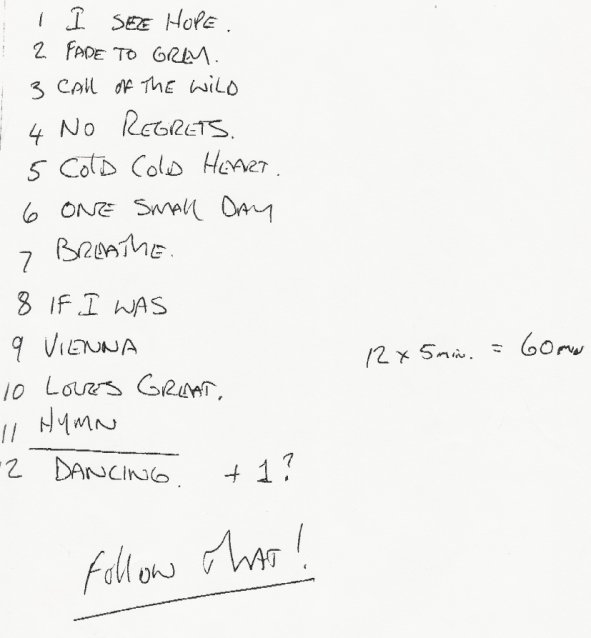 1 I SEE HOPE.
2 FADE TO GREY.
3 CALL OF THE WILD
4 NO REGRETS.
5 COLD COLD HEART.
6 ONE SMALL DAY
7 BREATHE.
8 IF I WAS
9 VIENNA
12 x 5 min. = 60 min
10 LOVES GREAT.
11 HYMN
12 DANCING. + 1?
Follow That!